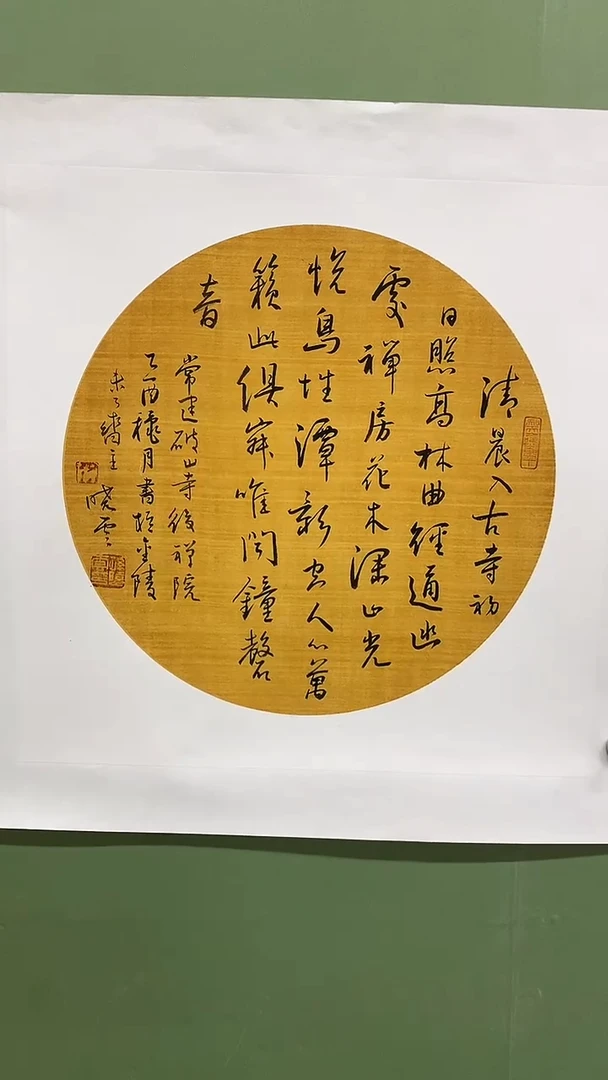 清晨入古寺初
日照高林曲徑通幽
處禪房花木深山光
悅鳥性潭影空人心萬
籟此俱寂唯聞鐘磬
音
常建破山寺後禪院
乙酉月書於金陵
未了齋主
曉雲